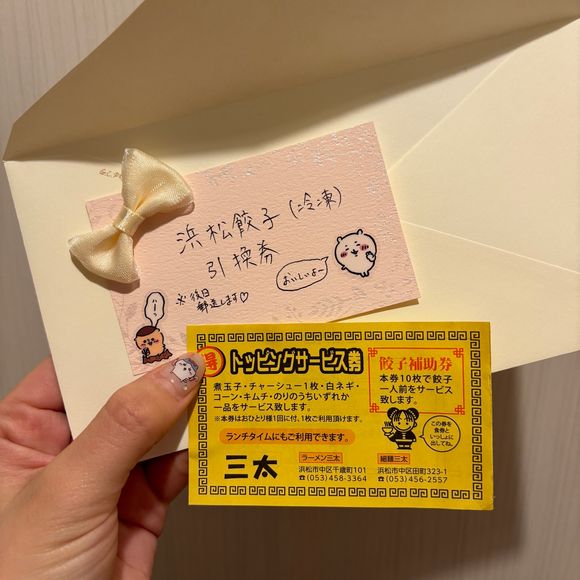 浜松餃子(冷凍)
引換券
※後日
郵送します♡
おいしいよー
得 トッピングサービス券
煮玉子・チャーシュー1枚・白ネギ・
コーン・キムチ・のりのうちいずれか
一品をサービス致します。
※本券はおひとり様1回に付、1枚ご利用頂けます。
ランチタイムにもご利用できます。
三太
餃子補助券
本券10枚で餃子
一人前をサービス
致します。
この券を
食券と
いっしょに
出してね。
ラーメン三太
浜松市中区千歳町101
☎(053)458-3364
細麺三太
浜松市中区田町323-1
☎(053)456-2557